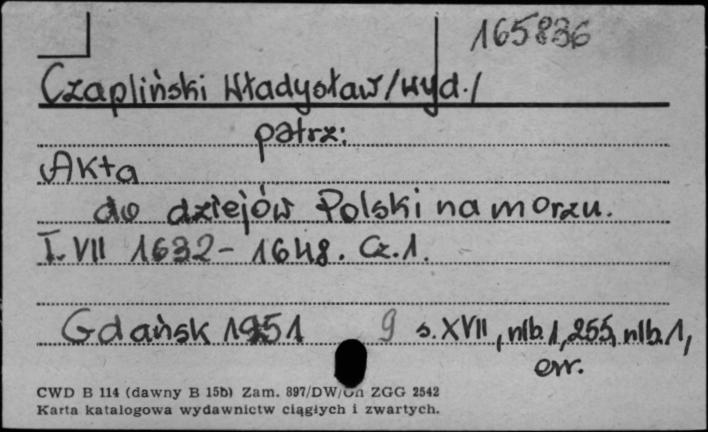 165836
Czapliński Władysław /wyd./
patrz:
Akta
do dziejów Polski na morzu.
T. VII 1632-1648. Cz. 1.
Gdańsk 1951 9 s. XVII, nlb. 1, 255, nlb. 1,
err.
CWD B 114 (dawny B 15b) Zam. 897/DW/Gn ZGG 2542
Karta katalogowa wydawnictw ciągłych i zwartych.